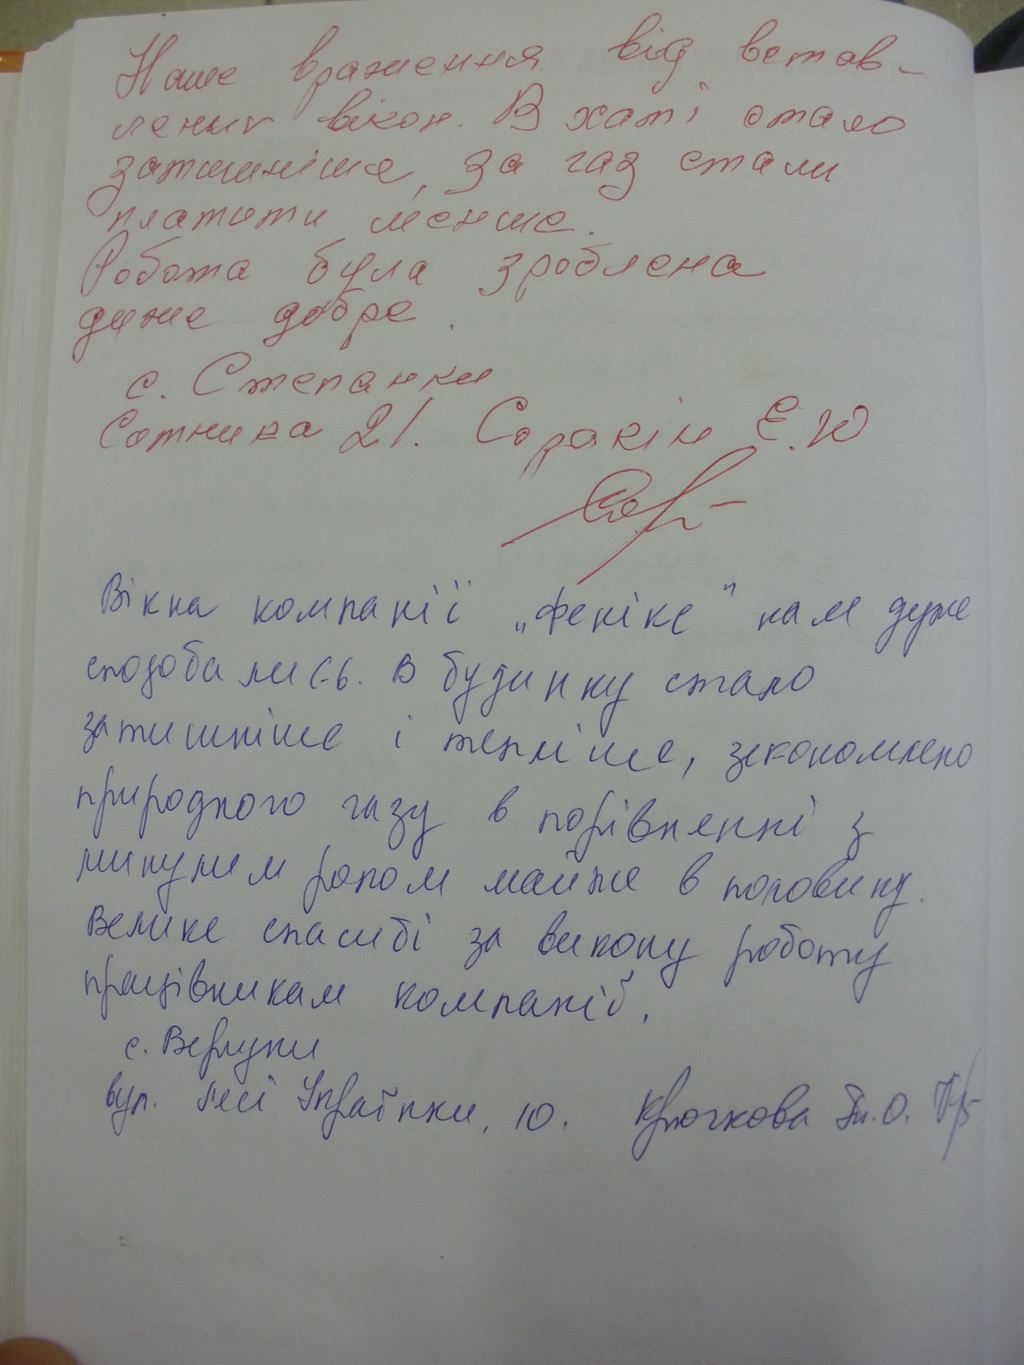 Наше враження від встав-
лених вікон. В хаті стало
затишніше, за газ стали
платити менше.
Робота була зроблена
дуже добре.
с. Степанки
Сотника 21. Соракін Є.Ю
Вікна компанії „Фенікс" нам дуже
сподобались. В будинку стало
затишніше і тепліше, зекономлено
природного газу в порівнянні з
минулим роком майже в половину.
Велике спасибі за викону роботу
працівникам компанії.
с. Вергуни
вул. Лесі Українки, 10. Крючкова О.